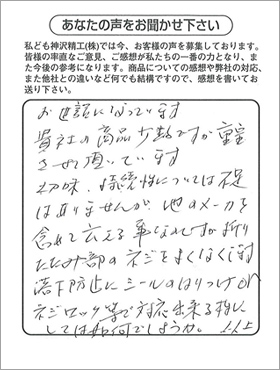 あなたの声をお聞かせ下さい
私ども神沢精工(株)では今、お客様の声を募集しております。
皆様の率直なご意見、ご感想が私たちの一番の力となり、ま
た今後の参考になります。商品についての感想や弊社の対応、
また他社との違いなど何でも結構ですので、感想を書いてお
送り下さい。
お世話になっています
貴社の商品少数ですが重宝
させて頂いています
切味、持続性については不足
はありませんが、他のメーカを
含めて云える事なんですが折り
たたみ部のネジをよくなくす
落下防止にシールのはりつけor
ネジロック等で対応出来る様に
しては如何でしょうか。以上